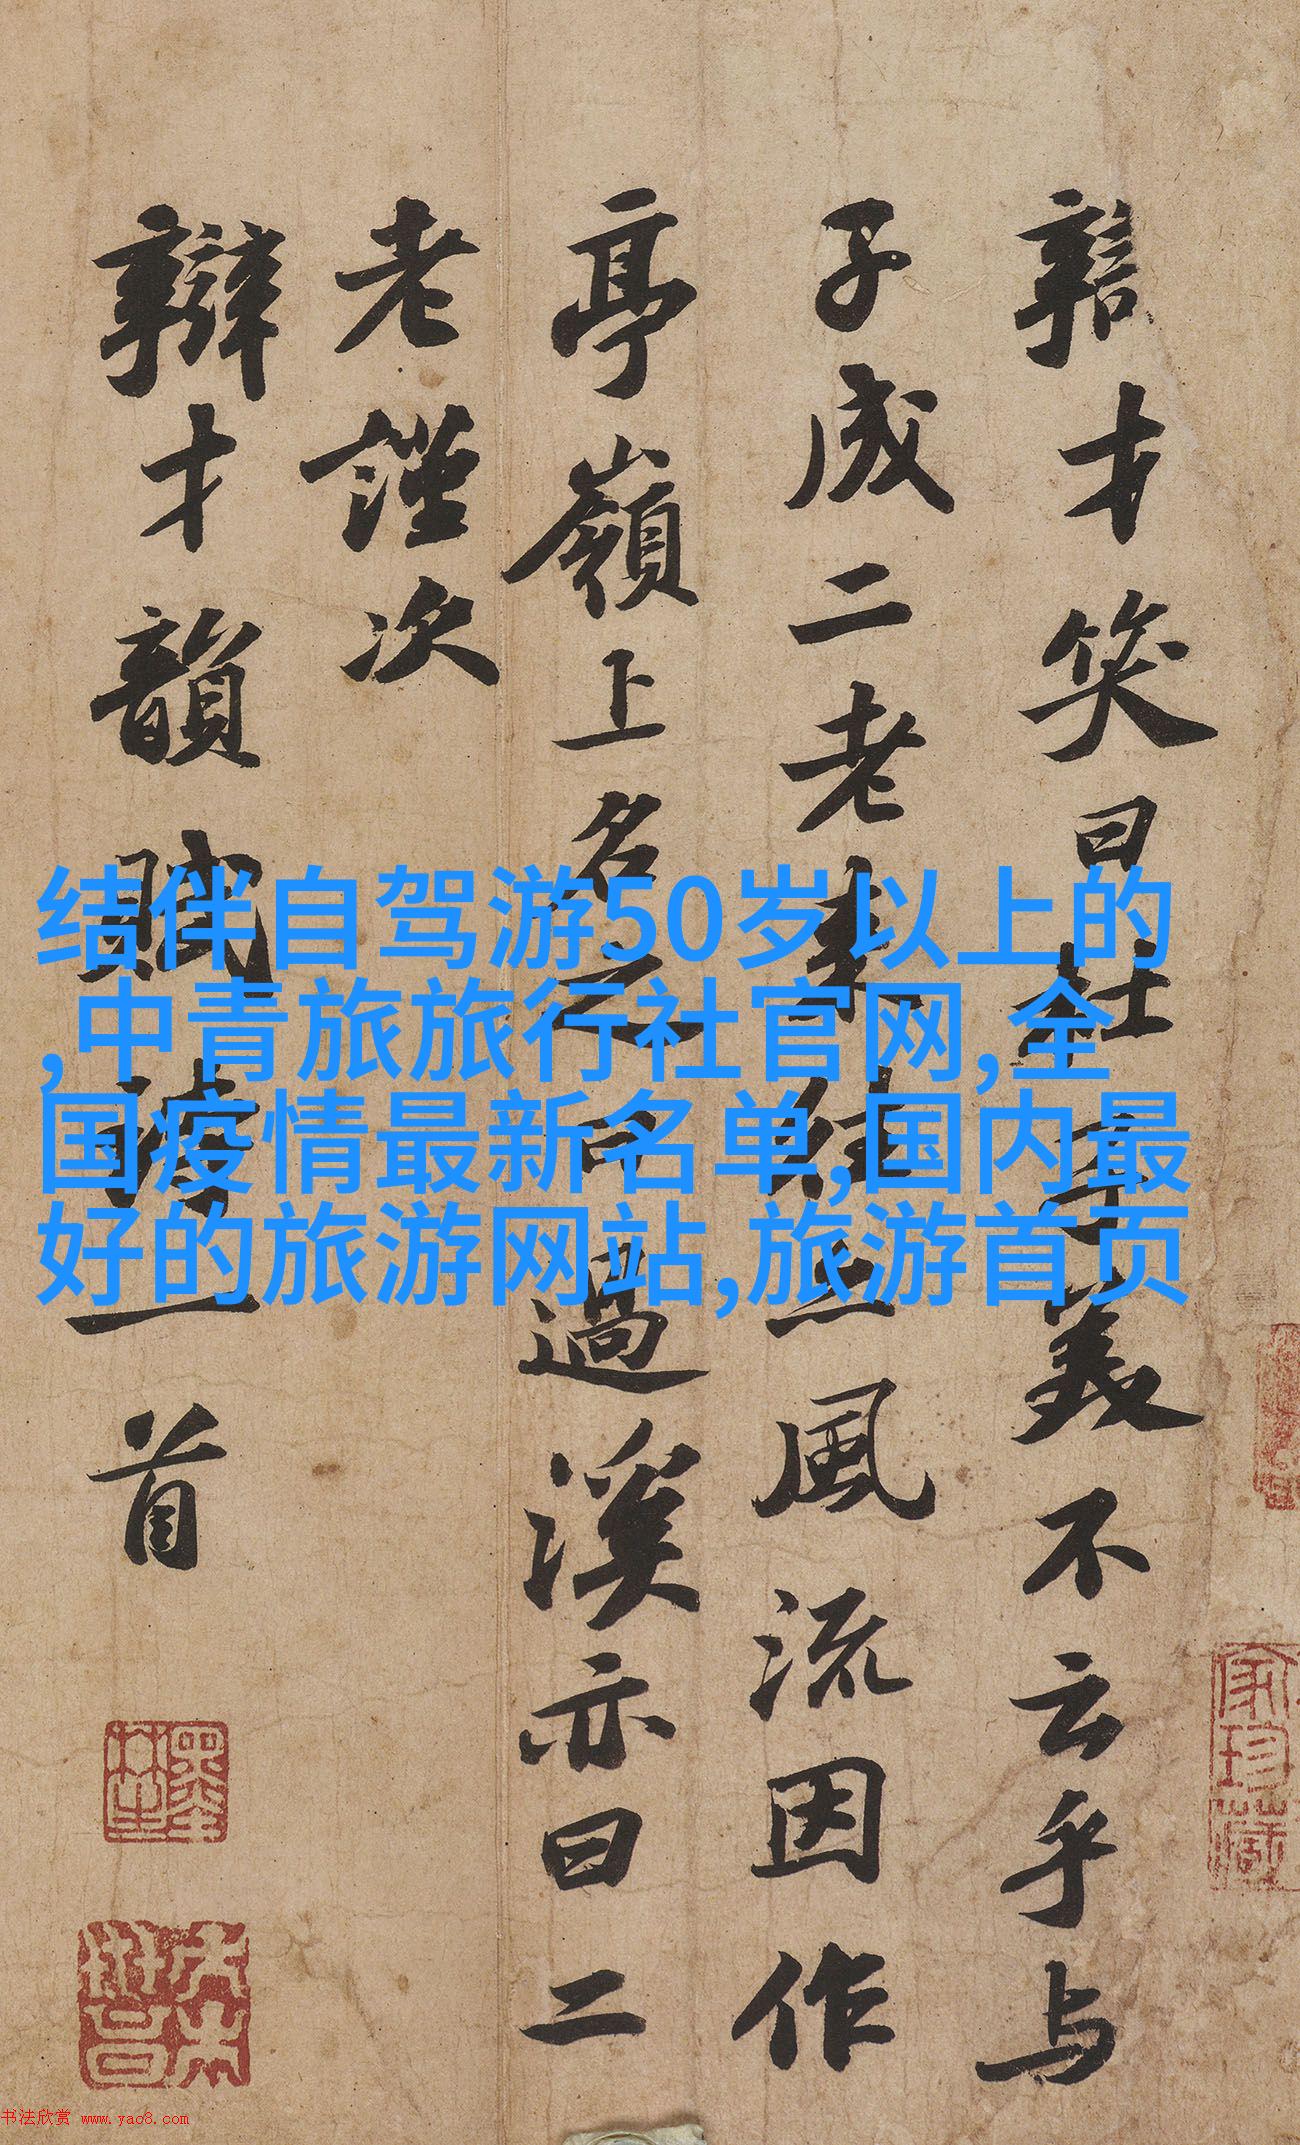 辯才笑曰杜子美不云乎与
子成二老来往亦風流因作
亭嶺上名之曰過溪亦曰二
老謹次
辯才韻賦詩一首
结伴自驾游50岁以上的
,中青旅旅行社官网,全
国疫情最新名单,国内最
好的旅游网站,旅游首页
家珍藏
书法欣赏 www.yac8.com